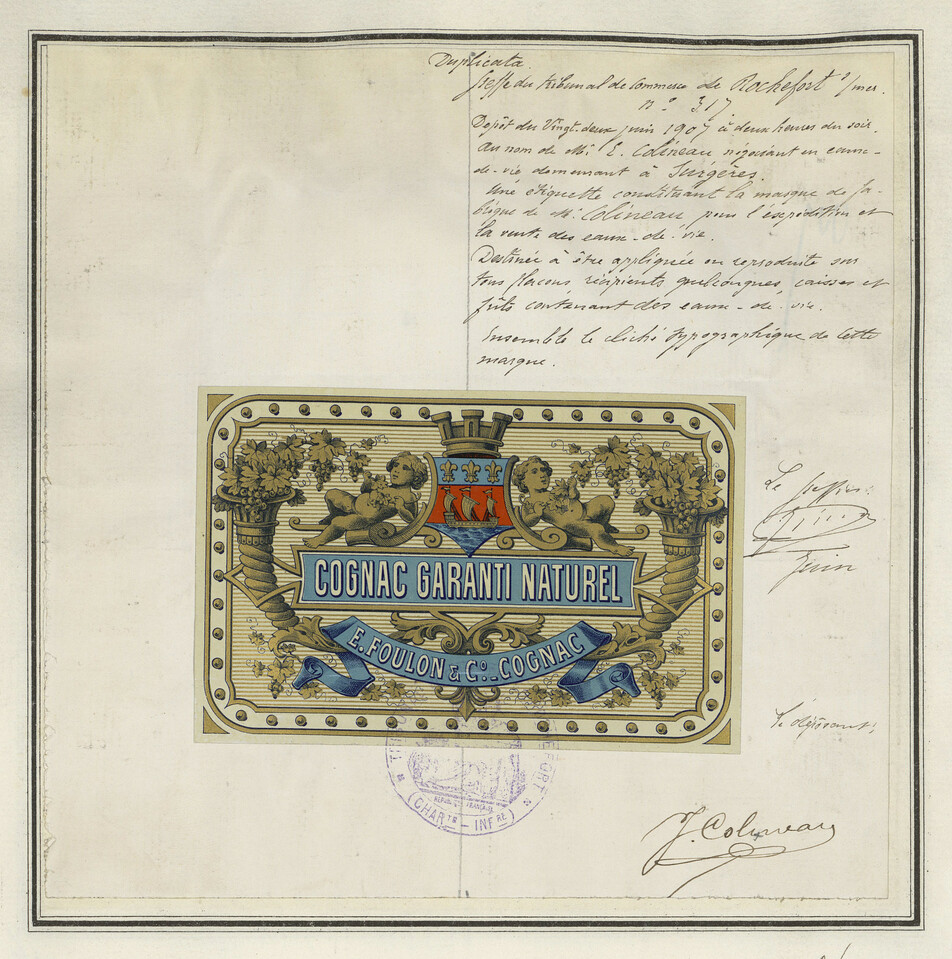 Duplicata.
Greffe du tribunal de Commerce de Rochefort s/mer.
N° 317.
Dépôt du Vingt-deux juin 1907 à deux heures du soir.
Au nom de Mr E. Colineau négociant en eaux-
de-vie demeurant à Surgères.
Une étiquette constituant la marque de fa-
brique de Mr Colineau pour l'expédition et
la vente des eaux-de-vie.
Destinée à être appliquée ou reproduite sur
tous flacons, récipients quelconques, caisses et
fûts contenant des eaux-de-vie.
Ensemble le cliché typographique de cette
marque.
COGNAC GARANTI NATUREL
E. FOULON & Co._COGNAC
Le greffier:
Le déposant:
RÉPUBLIQUE FRANÇAISE
(CHARTE - INFRE)
J. Colineau